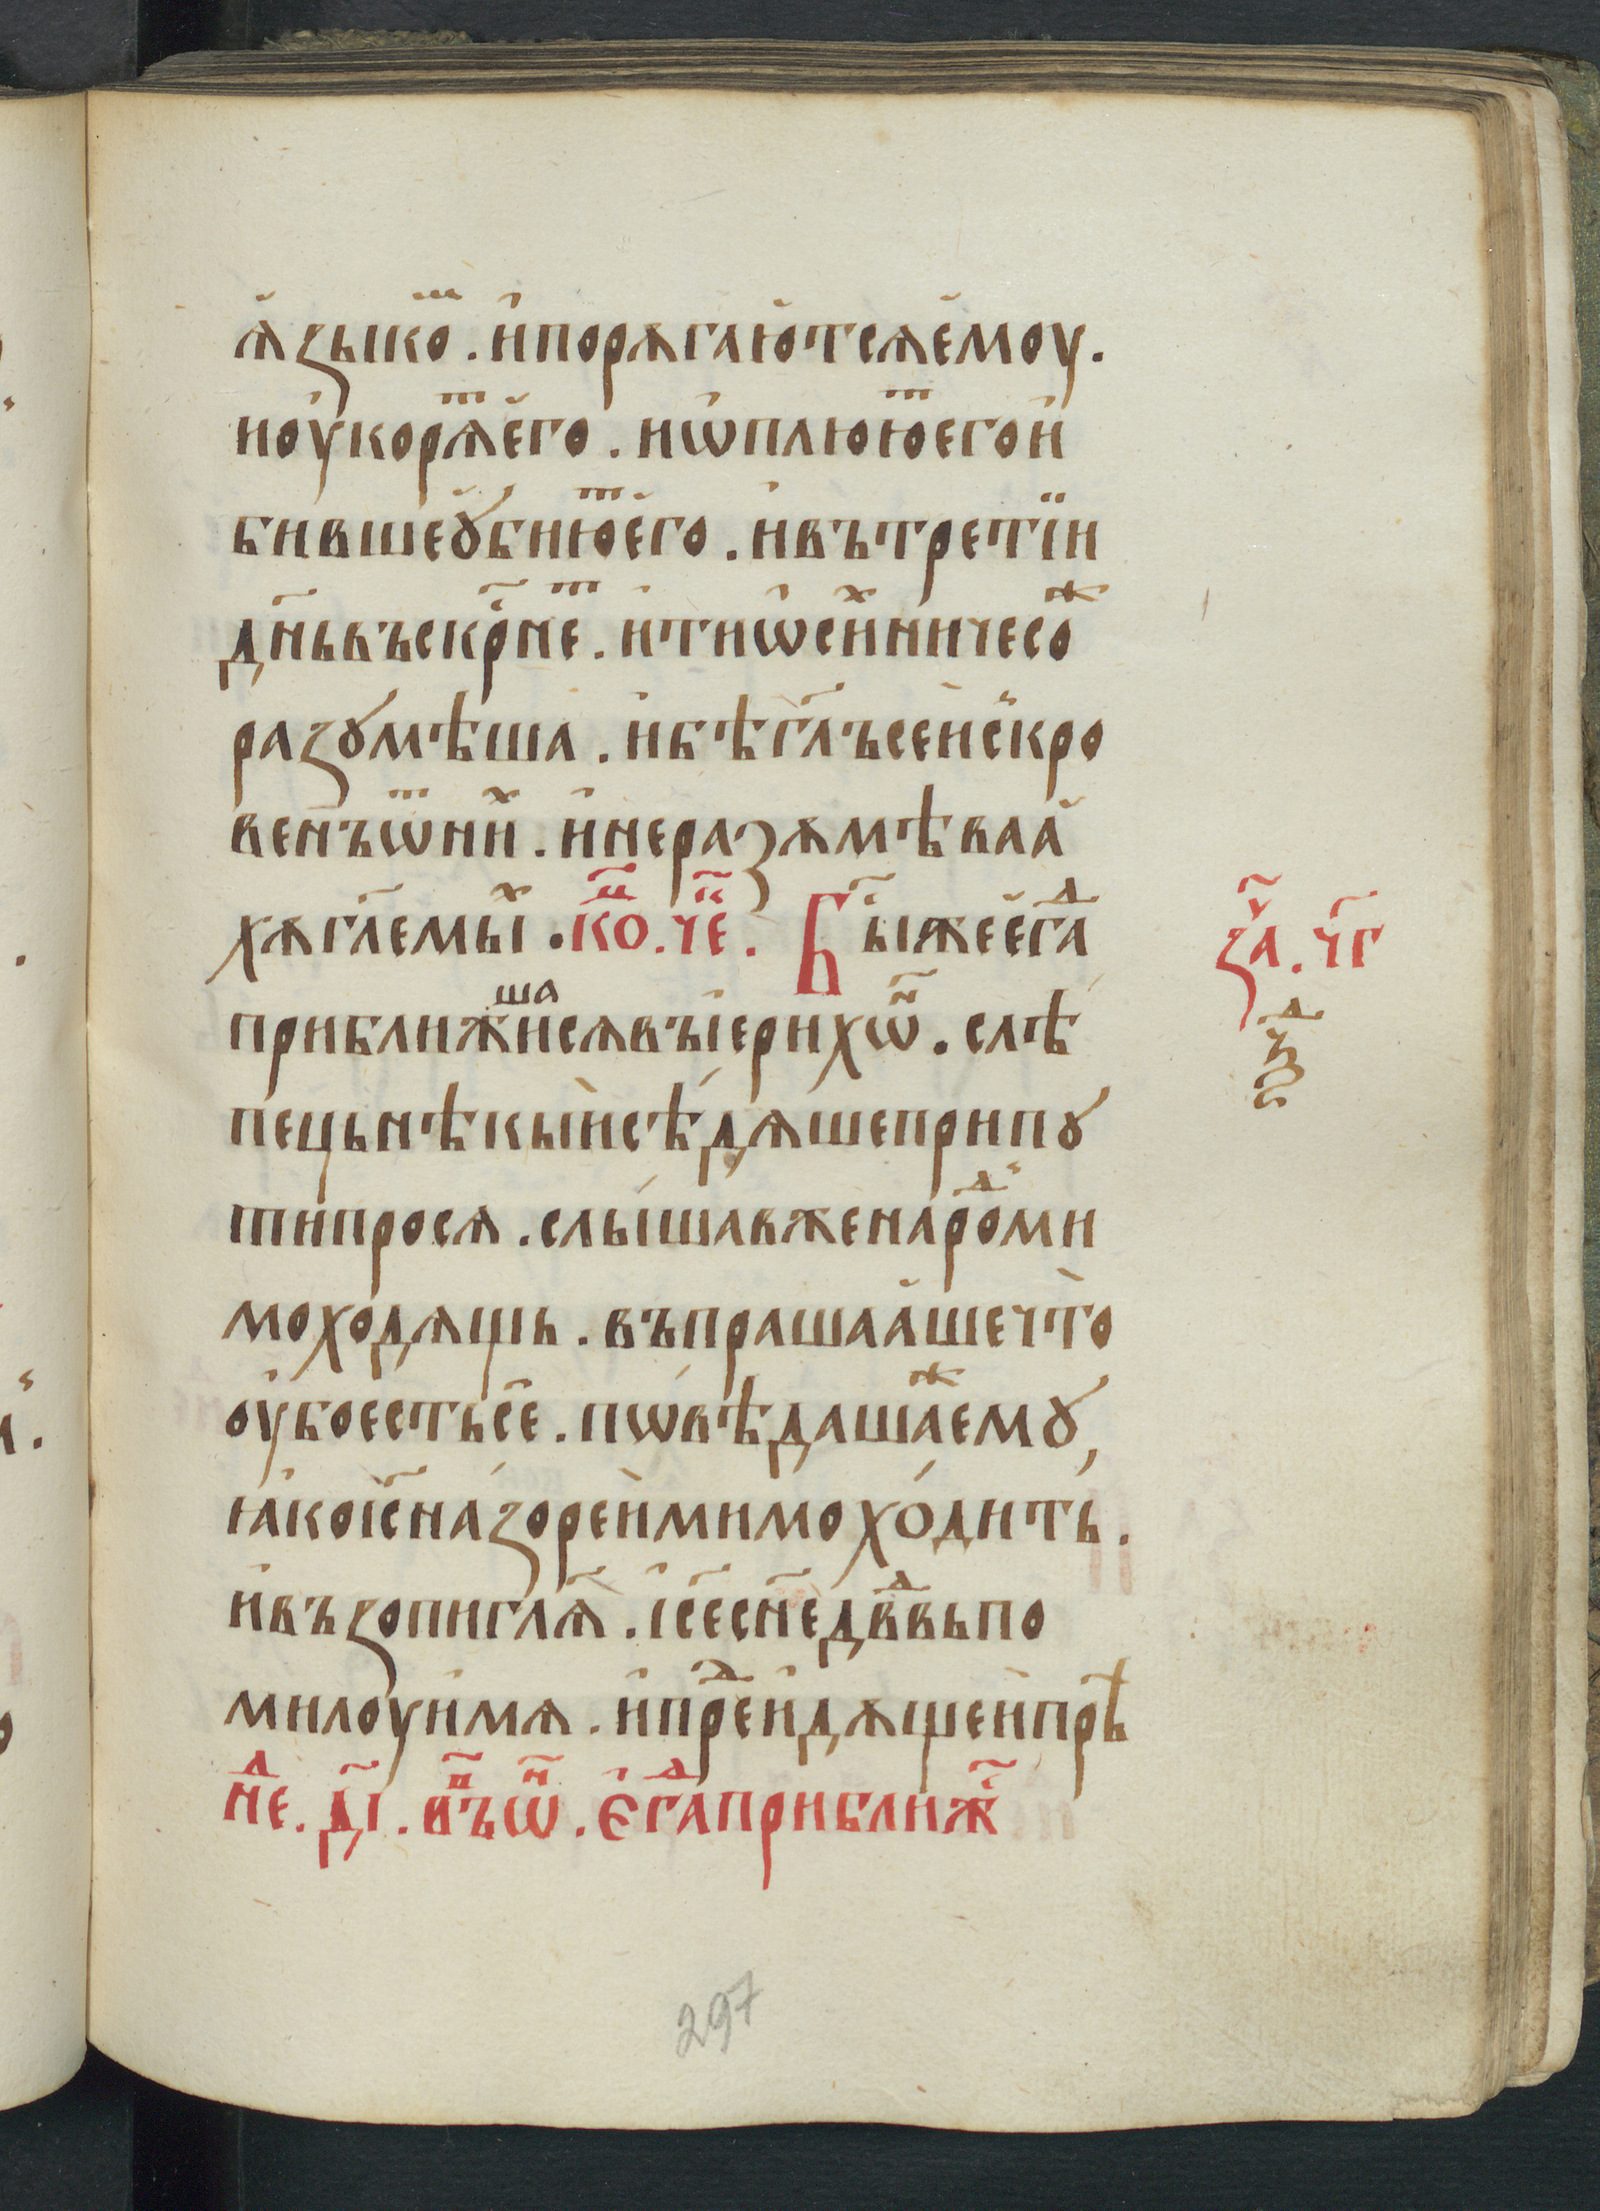 ѧ҆зыкоⷨ. и҆порѫгаю҆тсѧе҆моу.
ио҆укорѧⷮе҆го. иѡ҆плюю҆ⷮегои҆
бившеꙋ҆бию҆ⷮе҆го. и҆вътретїи
дн҃ьвъскрⷭ҇неⷮ. и҆тиѡ҆сиⷯничесоⷤ
разꙋмѣша. и҆бѣгл҃ъсеи҆с҆кро
венъѿниⷯ. и҆неразѫмѣваа҆
хѫгл҃емыⷯ. коⷰ҇.чеⷦ҇. Бы҃жее҆гаⷣ
приближишасѧвъі҆ерихѡⷩ҇. слѣ
пецьнѣкыи҆сѣ́дѧшеприпꙋ
тѝпросѧ. слы́шавженароⷣми
моходѧщь. въпрашаа҆шечтѐо
оу҆боестьсе҆. пѡвѣдашаⷤемꙋ,
ꙗ҆кої҆с҃на́зореи҆мимохо́дить.
и҆възопигл҃ѧ. і҆с҃ес҃нед҃вⷣвьпо
милоуи҆мѧ. и҆преⷣи҆дѫщеи҆прѣ
неⷣ. д҃і. въⷫ҇ѡⷩ҇. є҆гаⷣприближⷭ҇
заⷱ҇. ч҃г
зриⷣ
297